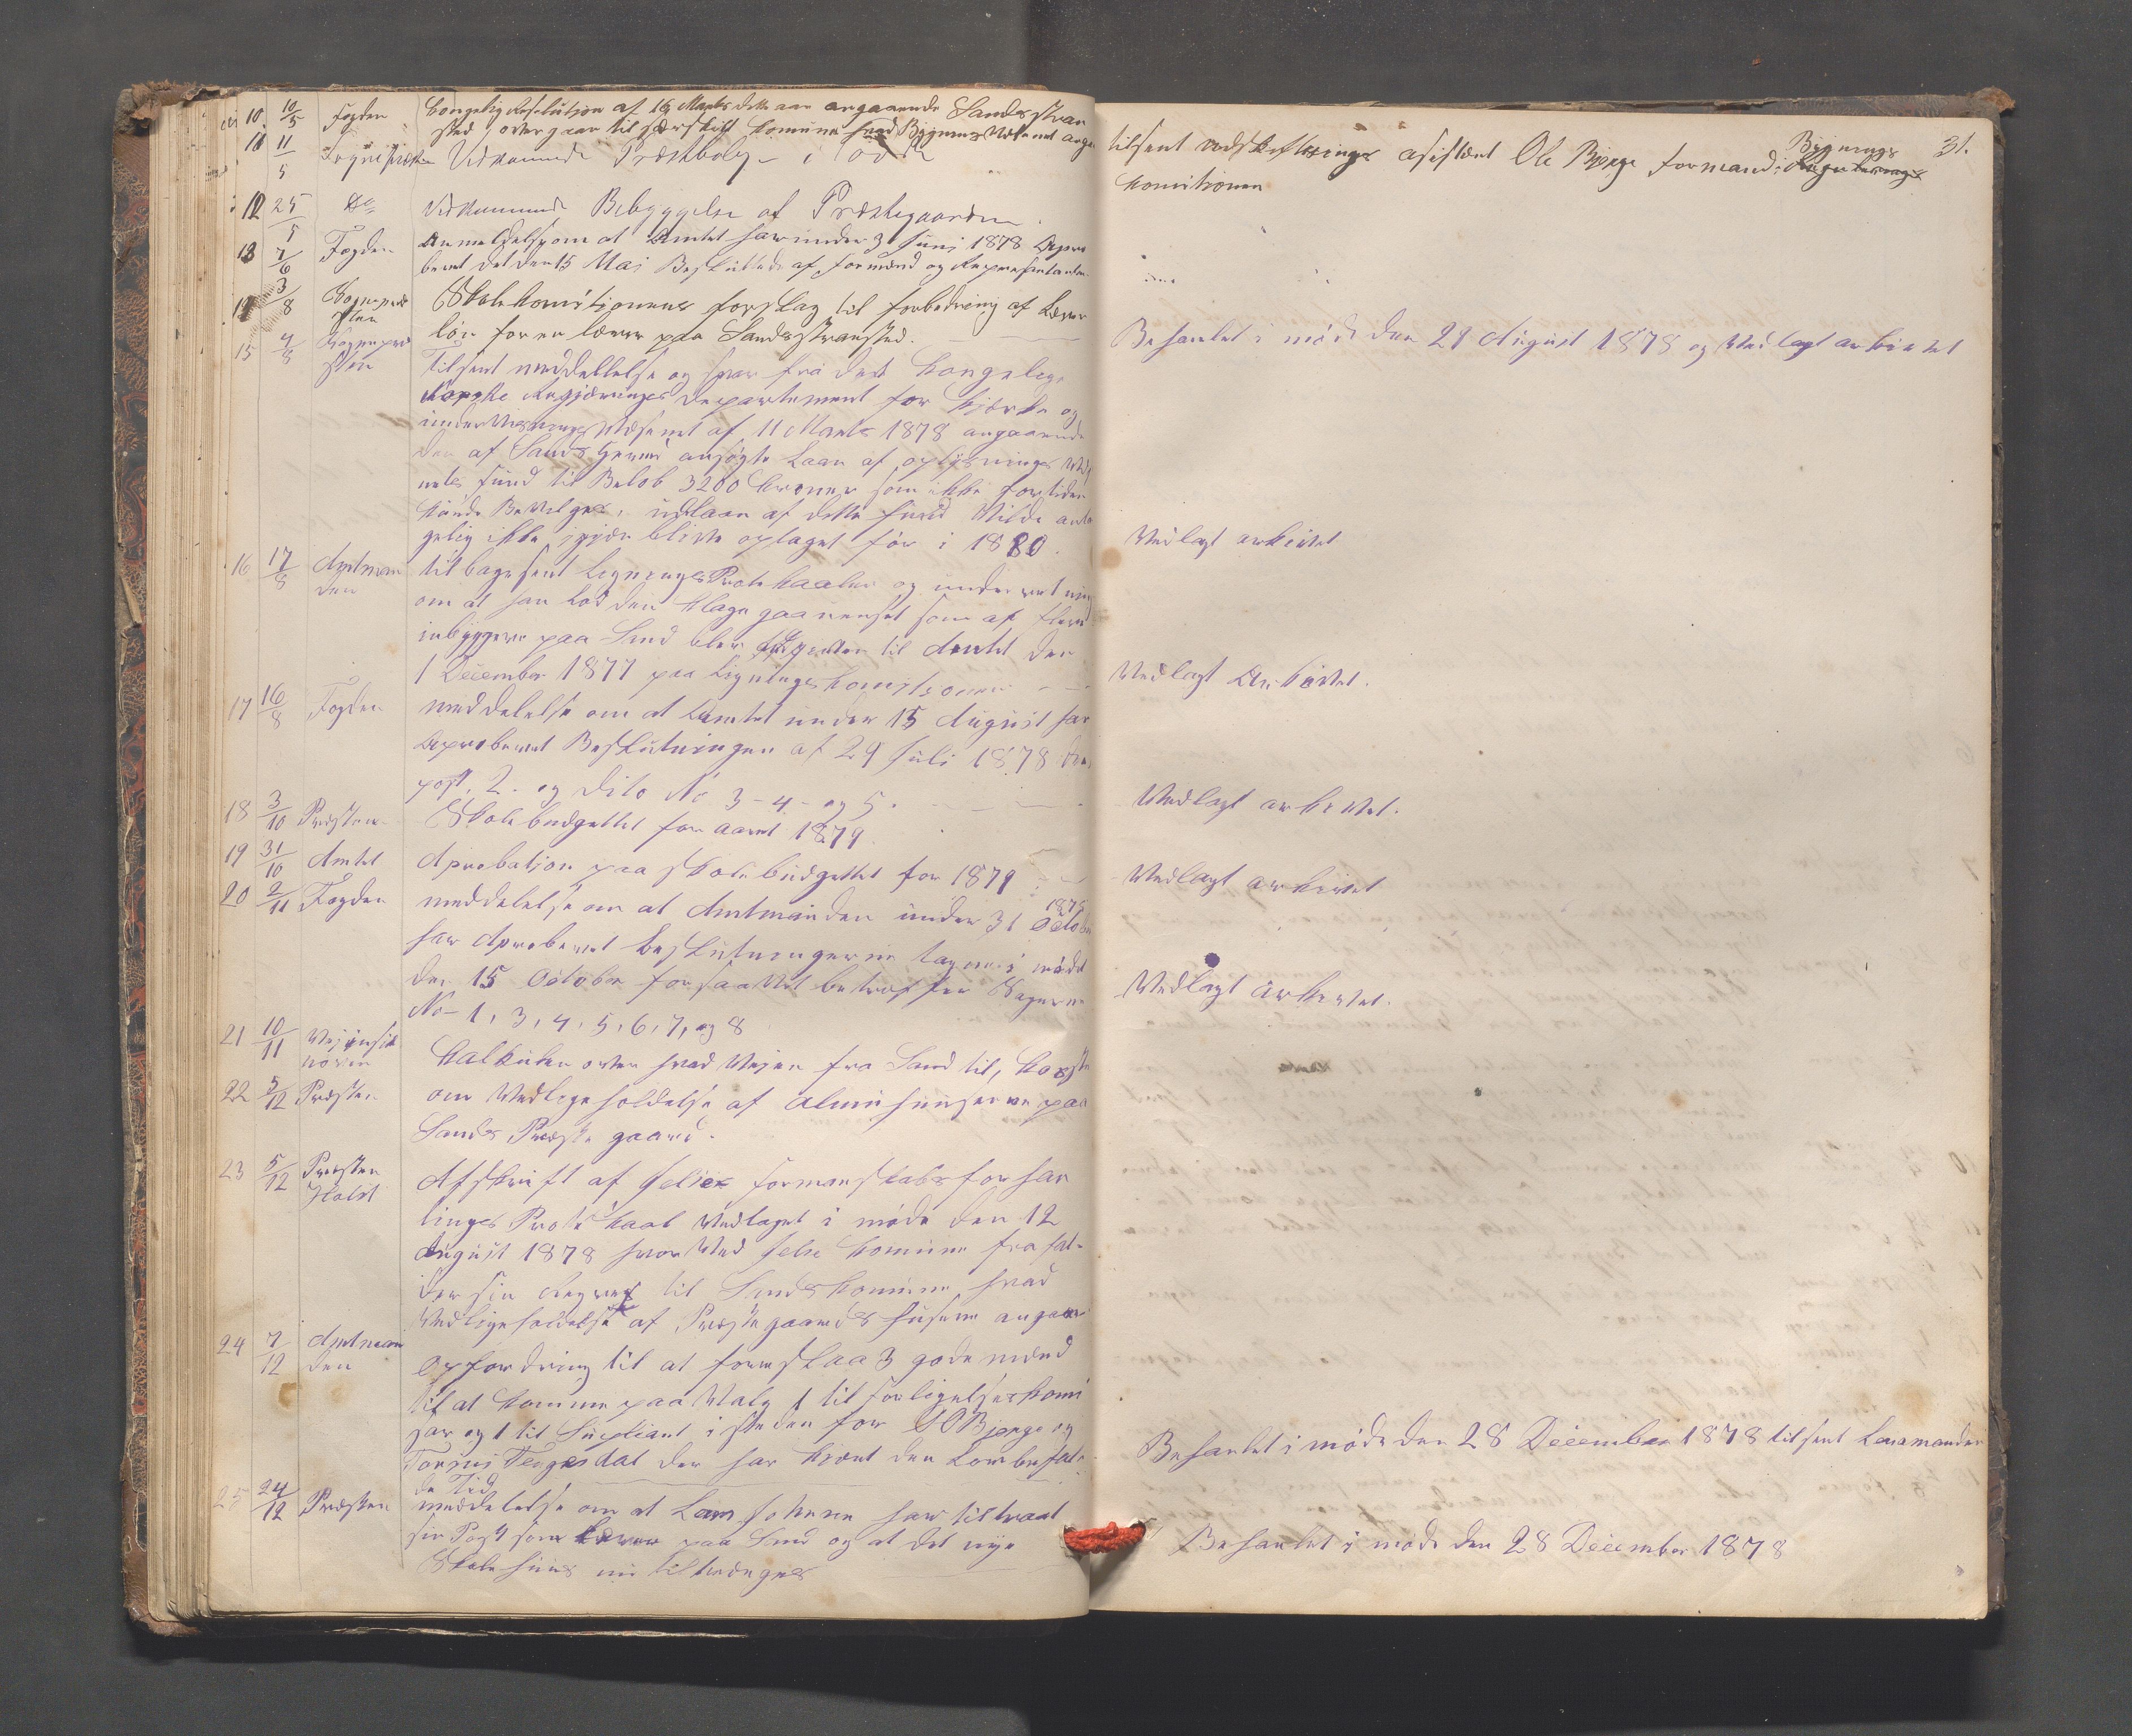 10 10/5 Fogden Kongelig Resolution af 16 Marts dette aar angaaende Sands stran
sted overgaar til særskilt Komune hvad Bygnings Væsenet anga
11 11/5 Vedkommende Præstebolig i
12 25/5 Do Vedkommende Bebyggelse af Præstegaarden
13 7/6 Fogden Anmeldelse om at Amtet har under 3 Juni 1878 Apro
beret det den 15 Mai Besluttede af formænd og Representanter
14 3/8 Sognepre
sten Skolekomitionens forslag til forbedring af Lærer
løn for en lærer paa Sandsstransted.
15 4/8 Sognepre
sten Tilsent meddellelse og svar fra det Kongelige
Norske Regjerings Departement for Kjerke og
underVisnings Væsenet af 11 Marts 1878 angaaende
den af Sands Herred ansøgte Laan af oplysnings Væse
nets fund til Beløb 3200 Kroner som ikke fortiden
kunde BeVilges, udlaan af dette fund Vilde anta
gelig ikke igjen blive optaget før i 1880.
16 17/8 Amtman
den tilbagesent Ligninges Protokaaler og underretning
om at han lod den Klage gaa uenset som af flere
inbyggere paa Sand blev til Amtet den
1 December 1877 paa Ligningeskomitionen
17 16/8 Fogden meddelelse om at Amtet under 15 August har
Aproberet Beslutningen af 29 Juli 1878
post. 2. og dito No 3-4- og 5.
18 3/10 Præsten Skolebudgettet for aaret 1879.
19 31/10 Amtet Aprobation paa skolebudgettet for 1879
20 2/11 Fogden meddelelse om at Amtmanden under 31 Octobe 1878
har Aproberet Beslutningerne tagne i mødet
den 15 October forsaaVet betreffer Sagerne
No- 1, 3, 4, 5, 6, 7, og 8
21 10/11
Kalkulen over hvad Vejen fra Sand til,
22 5/12 Præsten om Vedligeholdelse af paa
Sands Præstegaard.
23 5/12 Præsten
Holst Afskrift af Jelsex formanskabs forhan
linges Protokaal Vedtaget i møde den 12
August 1878 hvor Ved Jelse Komune frafal-
der sin Regres til Sands Komune hvad
Vedligeholdelse af Præstegaardes Husene angaar
24 7/12 Amtman
den Opfordring til at foreslaa 3 gode mænd
til at komme paa Valg 1 til forligelseskomi
sær og 1 til Supliant i steden for
der har tjent den Lovbefale
de Tid
25 24/12 Præsten meddelelse om at Lars har tiltraat
sin Post som Lærer paa Sand og at det nye
Skolehuus nu tiltrænges
31.
Bygnings
tilsent asistent Ole Bjorge formand i
Komitionen
Behanlet i møde den 29 August 1878 og Vedlagt arkivet
Vedlagt arkivet
Vedlagt Arkivet.
Vedlagt arkivet.
Vedlagt arkivet
Vedlagt arkivet.
Behanlet i møde den 28 December 1878 tilsent Lensmanden
Behanlet i møde den 28 December 1878